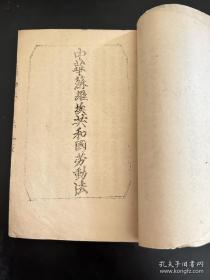 中華蘇維埃共和國勞動法
孔夫子旧书网